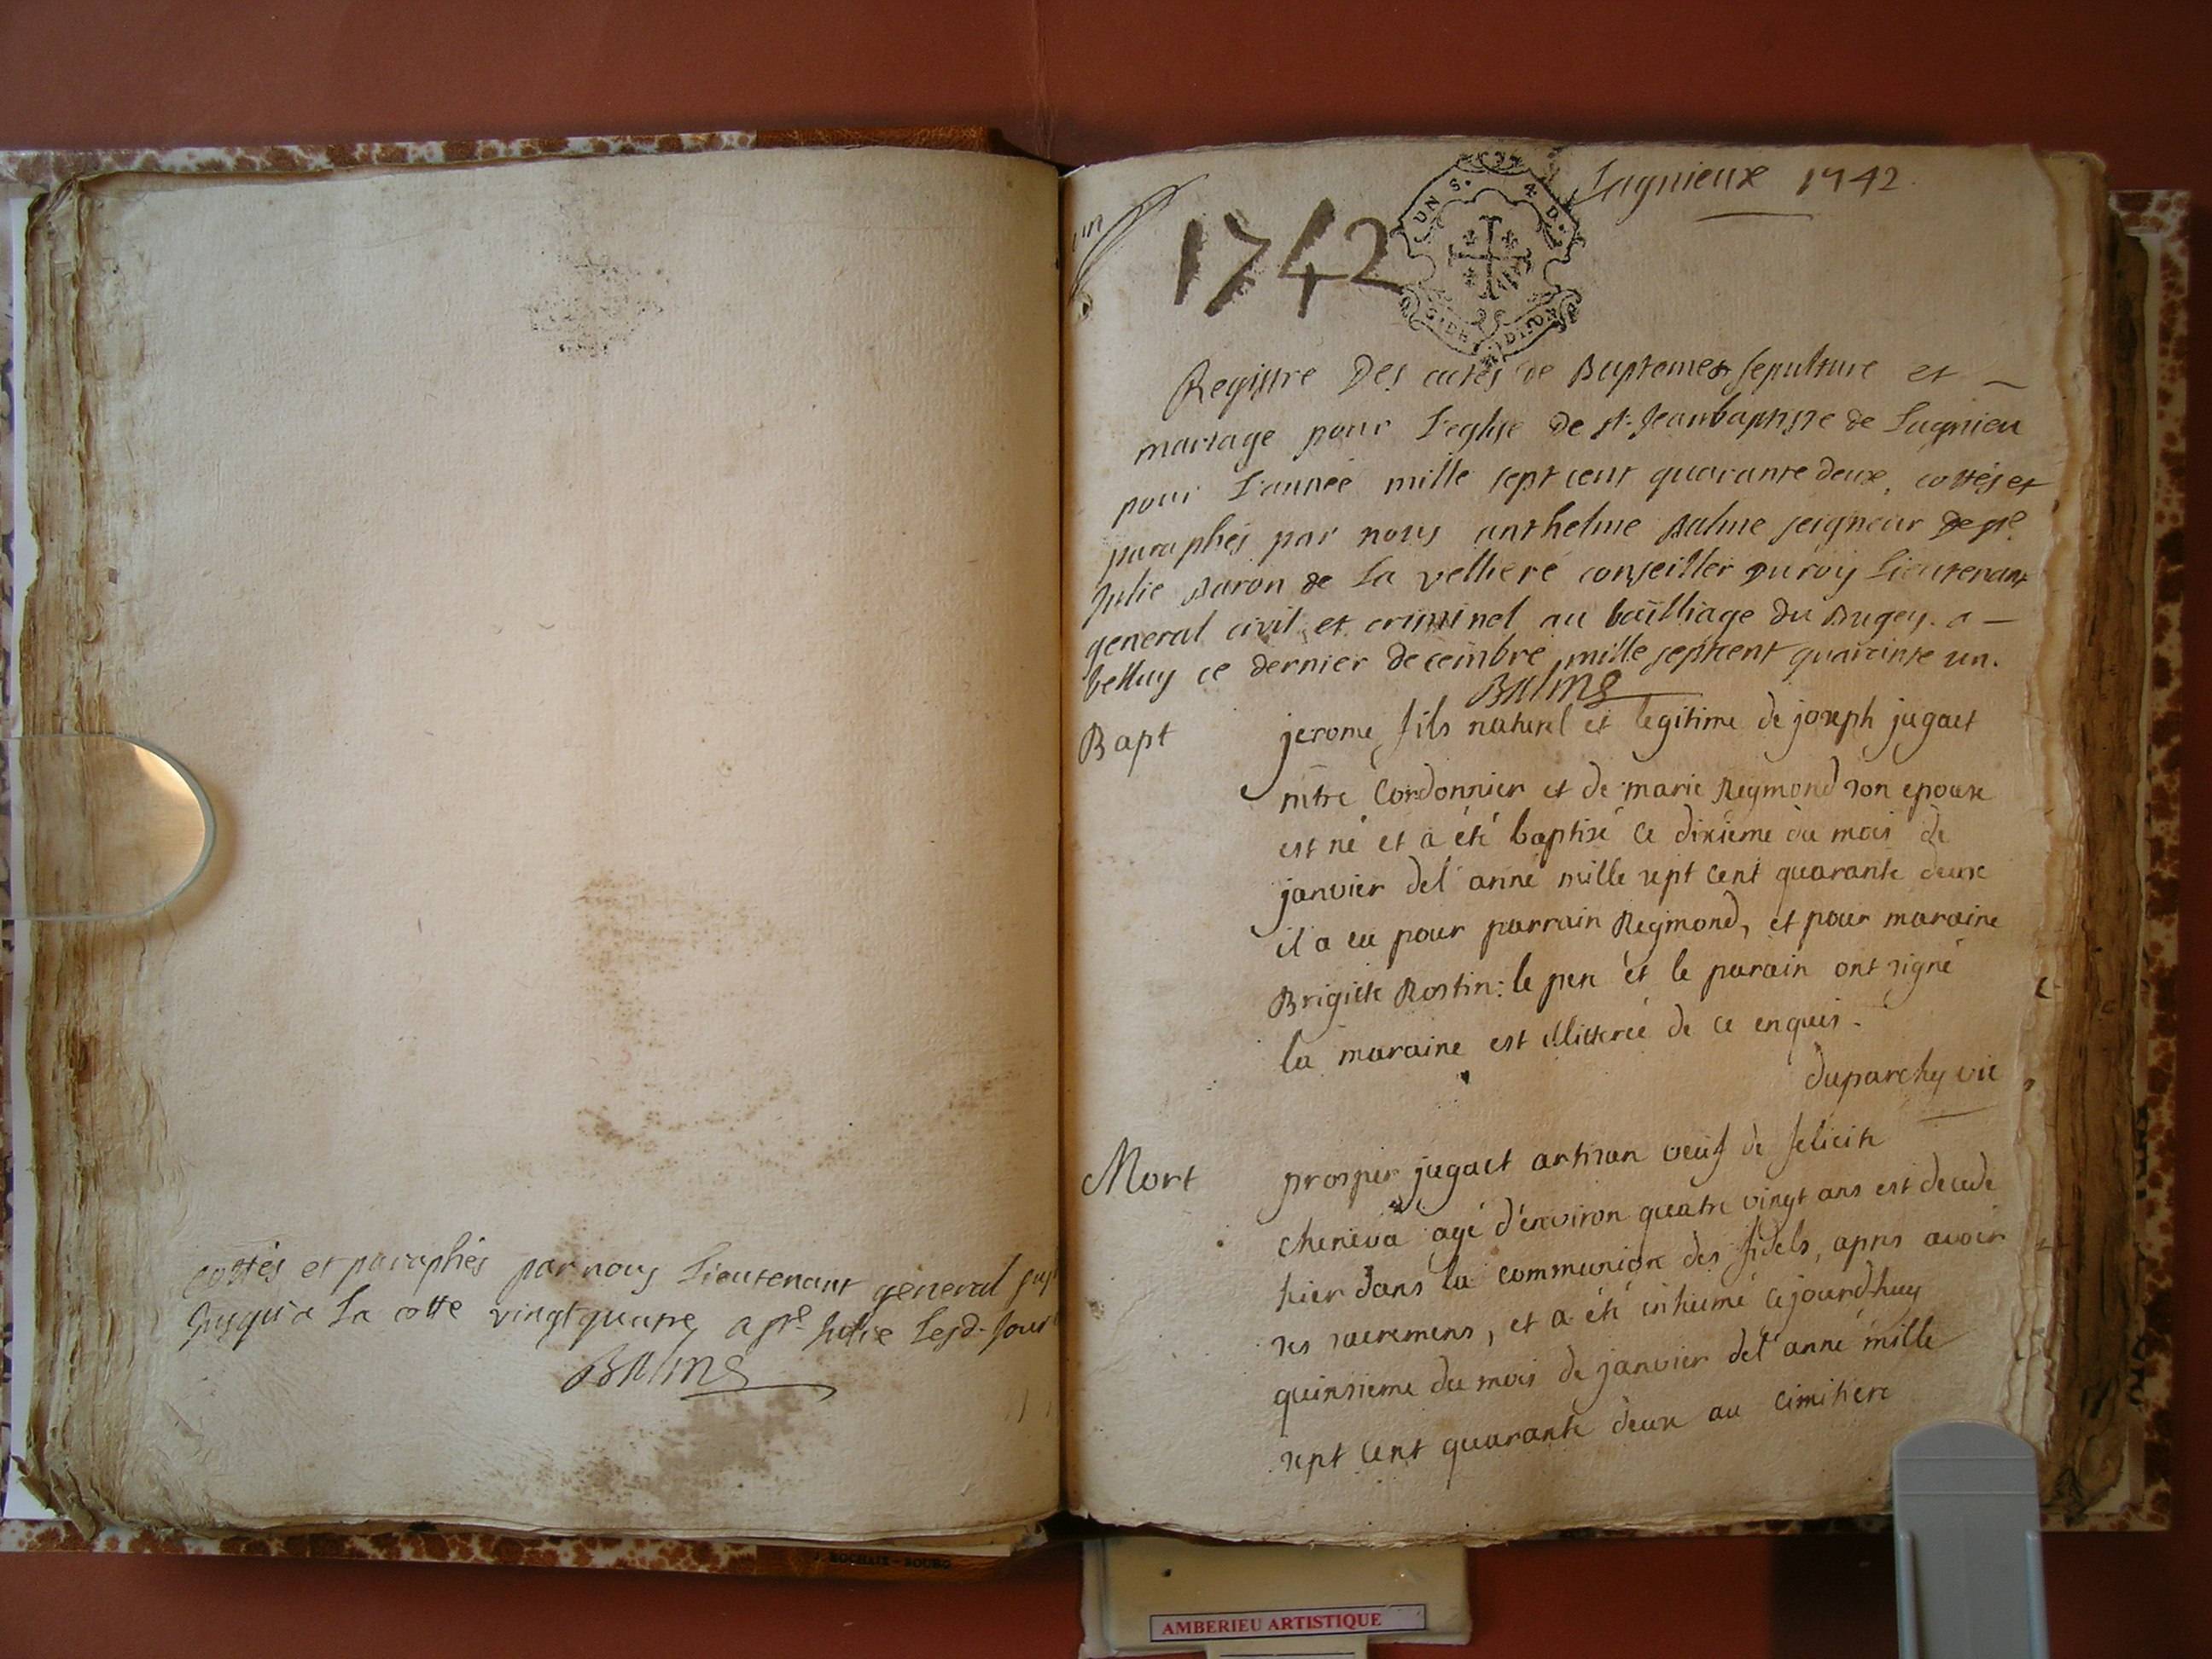 cottés et paraphés par nous Lieutenant general
Jusqu'a La cotte vingt quatre a Ste Julie Lesd. Jour
Balme
un
1742
UN S. 4 D.
G. DE DIJON
Lagnieux 1742
Registre Des actes de Baptemes sepulture et
mariage pour L'eglise de st. Jean baptiste de Lagnieu
pour L'année mille sept cent quarante deux, cottés et
paraphés par nous anthelme Balme seigneur de ste
Julie Baron de La vellieré conseiller Du roy Lieutenant
general civil et criminel au bailliage du Bugey. a
belluy ce dernier decembre mille sept cent quarante un.
Balme
Bapt
jerome fils naturel et legitime de joseph jugaet
mtre Cordonnier et de marie Reymond son epouse
est né et a été baptisé ce dixieme du mois de
janvier del' anné mille sept cent quarante deux
il a eu pour parrain Reymond, et pour maraine
Brigitte Rostin: le pere et le parain ont signé
la maraine est illitterée de ce enquis.
duparchy vic
Mort
prosper jugaet artisan veuf de felicite
cheneva agé d'environ quatre vingt ans est decede
hier dans la communion des fidels, apres avoir
ses sacremens, et a été inhumé cejourdhuy
quinsieme du mois de janvier del' anné mille
sept cent quarante deux au cimitiere
J. ROCHAIX - BOURG
AMBERIEU ARTISTIQUE